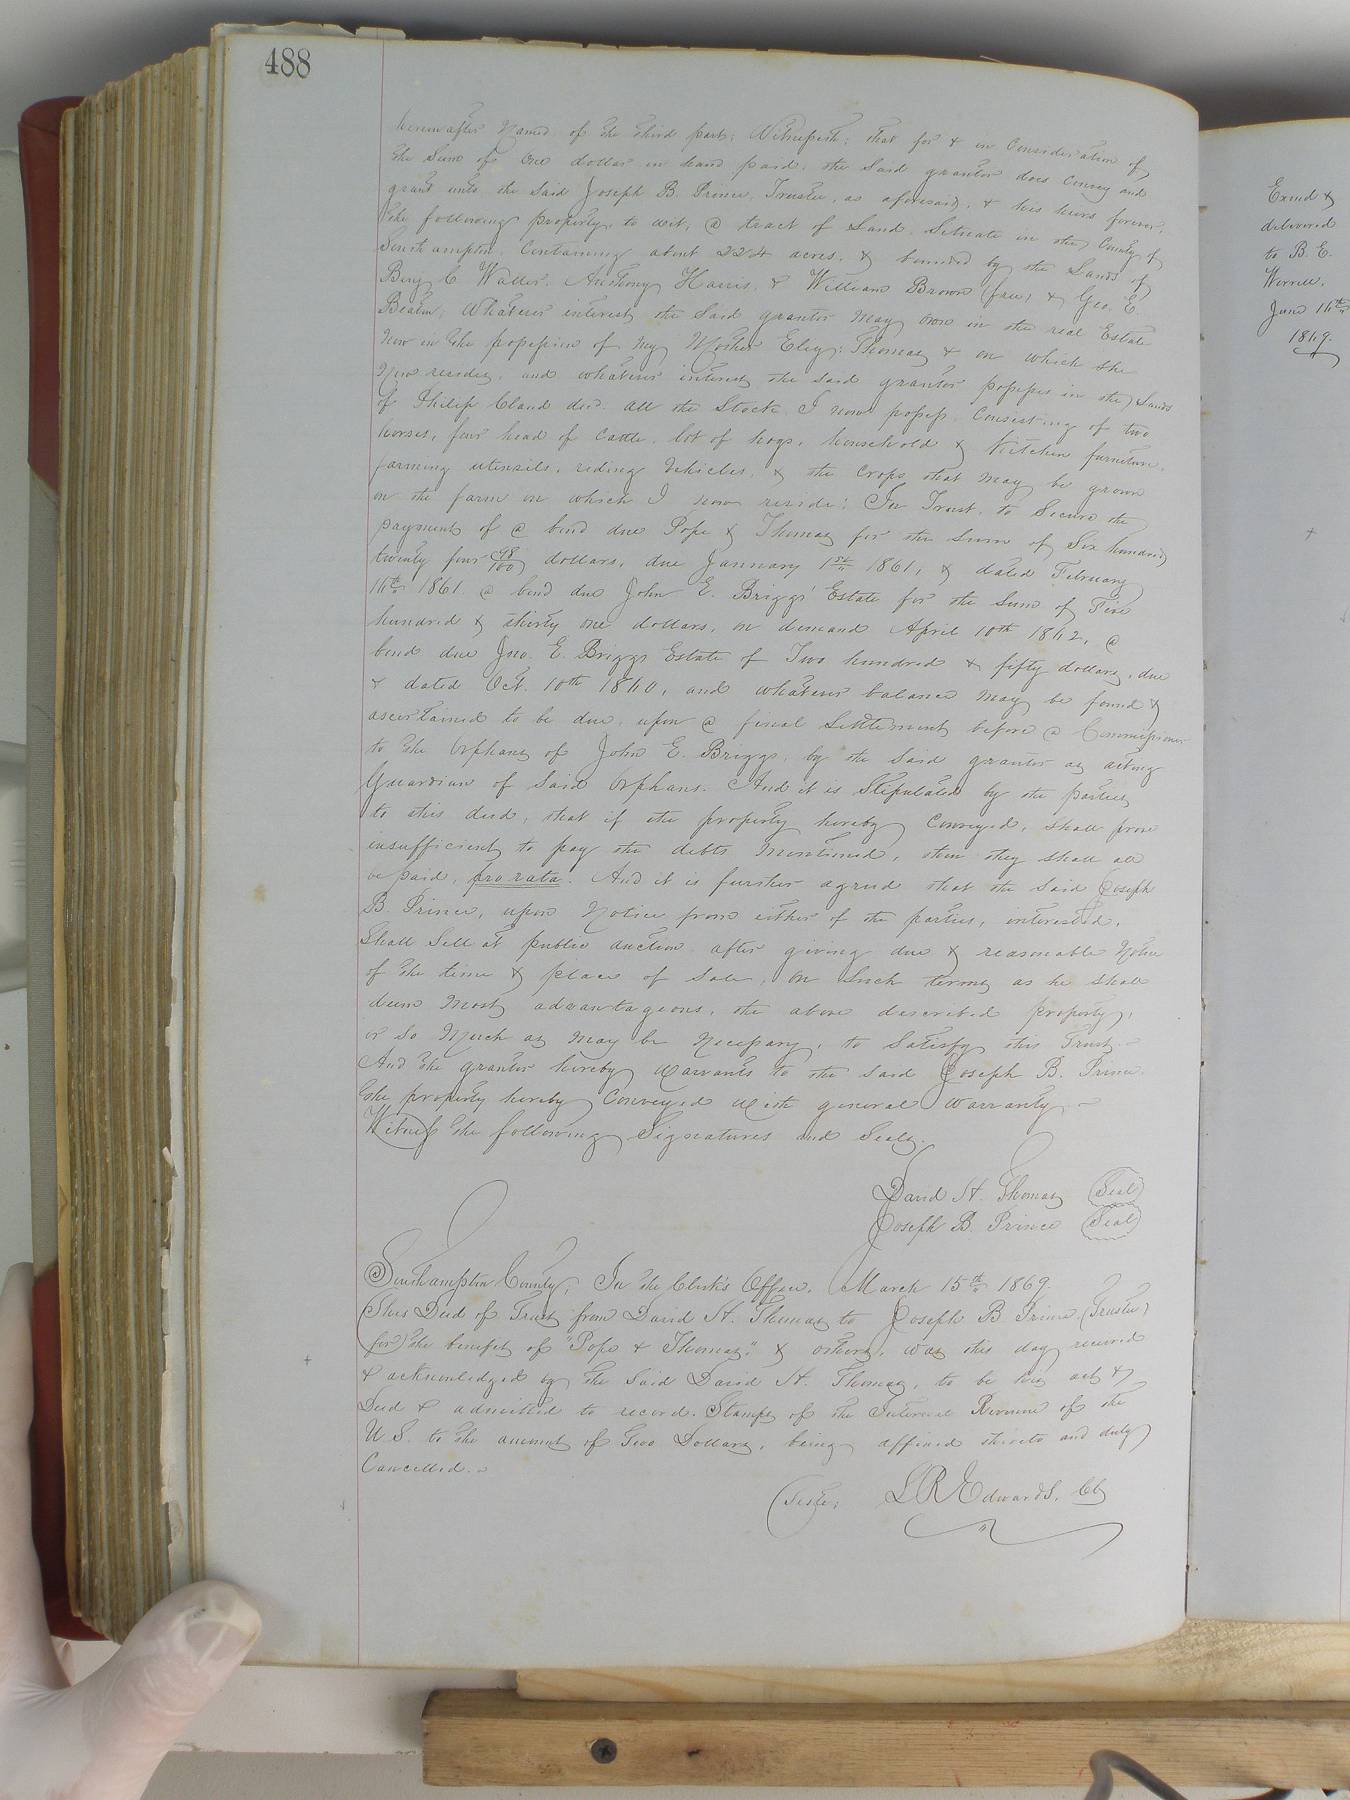 488
hereinafter named of the third part; Witnesseth; that for & in consideration of
the sum of One dollar in hand paid, the said grantor does convey and
grant unto the said Joseph B. Prince, Trustee, as aforesaid, & his heirs forever,
the following property, to wit, @ tract of Land, situate in the County of
Southampton, containing about 224 acres, & bounded by the Lands of
Benj. C Waller, Anthony Harris, & William Brown (free) & Geo. E.
Beaton, Whatever interest the said grantor may own in the real Estate
Now in the possession of my Mother Eley: Thomas & on which she
Now resides, and whatever interest the said grantor possesses in the Lands
of Philip Bland decd. all the Stock I now possess, consisting of two
horses, four head of cattle, lot of hogs, household & Kitchen furniture,
farming utensils, riding Vehicles, & the crops that may be grown
on the farm on which I now reside: In Trust, to Secure the
payment of @ bond due Pope & Thomas for the sum of Six hundred
twenty four 98/100 dollars, due January 1st 1861, & dated February
16th 1861. @ bond due John E. Briggs' Estate for the sum of Five
hundred & thirty one dollars, on demand April 10th 1862, @
bond due Jno. E. Briggs Estate of Two hundred & fifty dollars, due
& dated Oct. 10th 1860, and whatever balance may be found &
ascertained to be due, upon @ final Settlement before @ Commissioner
to the Orphans of John E. Briggs, by the said grantor as acting
Guardian of said Orphans. And it is Stipulated by the parties
to this deed, that if the property hereby conveyed, shall prove
insufficient to pay the debts mentioned, then they shall all
be paid, pro rata. And it is further agreed that the said Joseph
B. Prince, upon Notice from either of the parties, interested,
shall Sell at public auction, after giving due & reasonable Notice
of the time & place of Sale, on such terms as he shall
deem most advantageous, the above described property,
or so Much as may be Necessary, to satisfy this Trust.
And the grantor hereby warrants to the said Joseph B. Prince
the property hereby conveyed with general warranty.
Witness the following Signatures and Seals.
David H. Thomas (Seal)
Joseph B. Prince (Seal)
Southampton County; In the Clerk's Office, March 15th 1869.
This Deed of Trust from David H. Thomas to Joseph B Prince (Trustee)
for the benefit of "Pope & Thomas" & others, was this day received
& acknowledged by the said David H. Thomas, to be his act &
Deed & admitted to record. Stamps of the Internal Revenue of the
U.S. to the amount of Two Dollars, being affixed thereto and duly
Cancelled.
Teste; L R Edwards, Clk
Examd &
delivered
to B. E.
Worrell.
June 16th
1869.